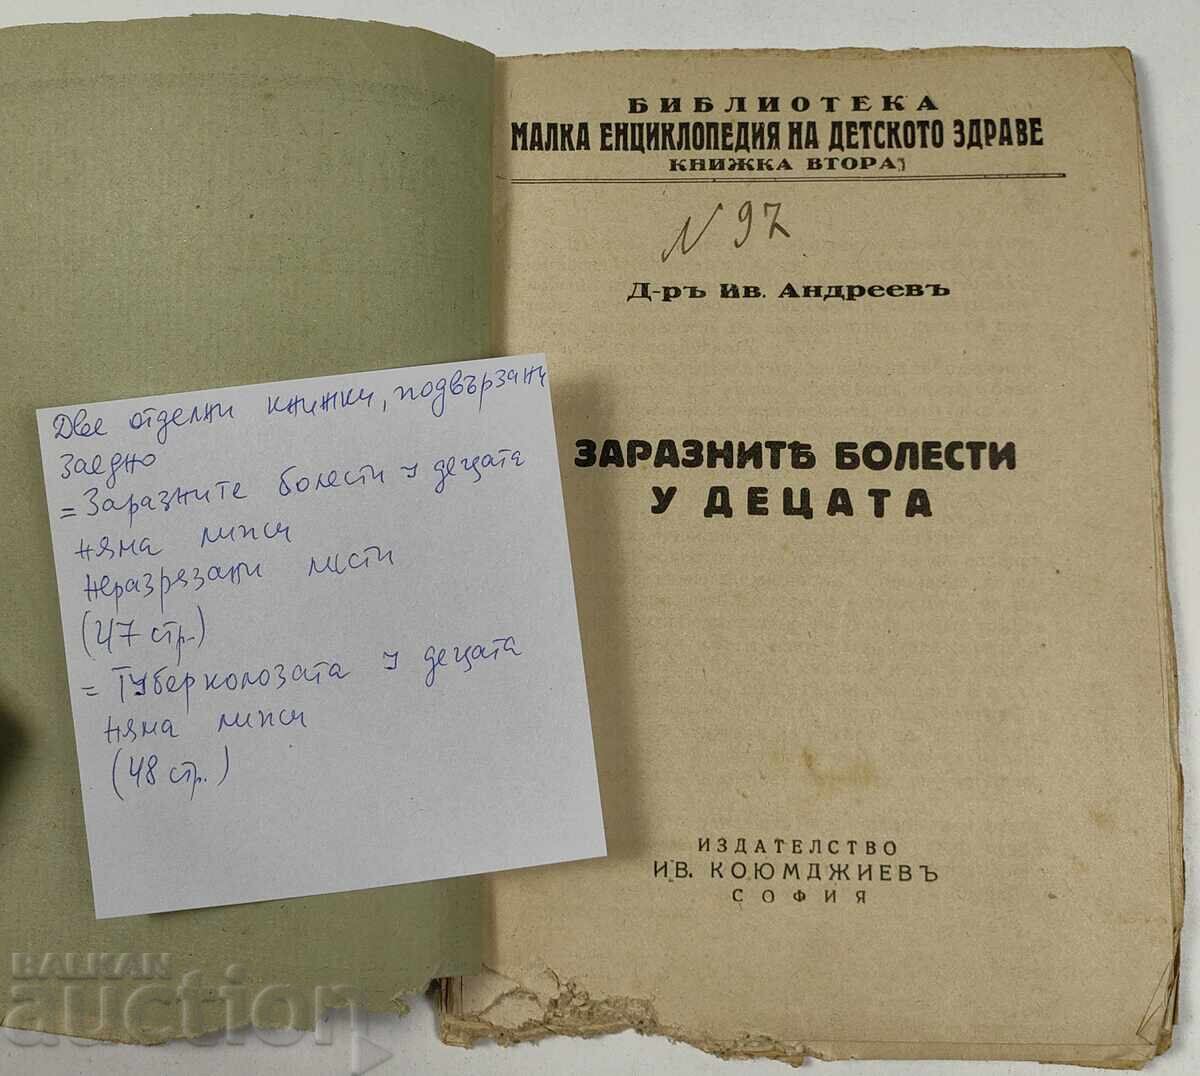 БИБЛИОТЕКА
МАЛКА ЕНЦИКЛОПЕДИЯ НА ДЕТСКОТО ЗДРАВЕ
КНИЖКА ВТОРА
N 97
Д-ръ Ив. Андреевъ
ЗАРАЗНИТѢ БОЛЕСТИ
У ДЕЦАТА
ИЗДАТЕЛСТВО
ИВ. КОЮМДЖИЕВЪ
СОФИЯ
Две отделни книжки, подвързани
заедно
= Заразните болести у децата
няма липси
неразрязани листи
(47 стр.)
= Туберколозата у децата
няма липси
(48 стр.)
BALKAN
auction